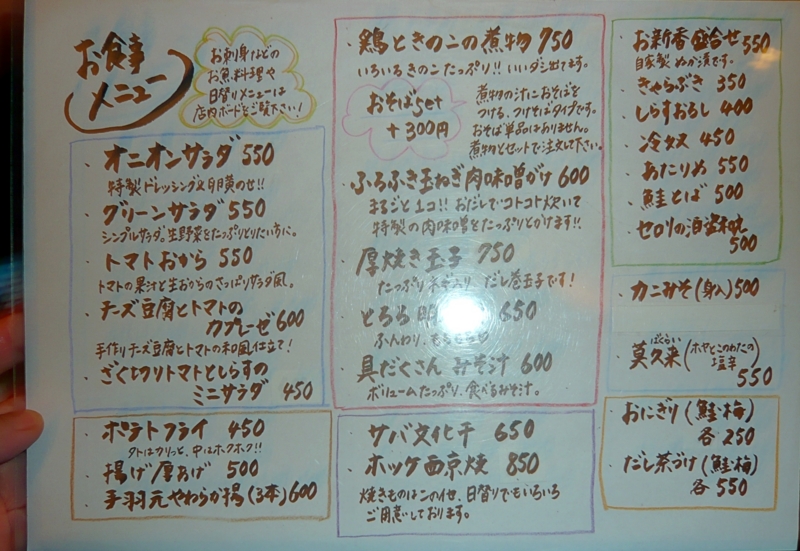 お食事
メニュー
お刺身などの
お魚料理や
日替りメニューは
店内ボードをご覧下さい!
・オニオンサラダ 550
特製ドレッシング&卵黄のせ!!
・グリーンサラダ 550
シンプルサラダ。生野菜をたっぷりとりたい方に。
・トマトおから 550
トマトの果汁と生おからのさっぱりサラダ風。
・チーズ豆腐とトマトの
カプレーゼ 600
手作りチーズ豆腐とトマトの和風仕立て!
・ざく切りトマトとしらすの
ミニサラダ 450
・ポテトフライ 450
外はカリッと、中はホクホク!!
・揚げ厚あげ 500
・手羽元やわらか揚(3本) 600
・鶏ときのこの煮物 750
いろいろきのこたっぷり!! いいダシ出てます。
おそばset
+300円
煮物の汁におそばを
つける、つけそばタイプです。
おそば単品はありません。
煮物とセットで注文して下さい。
・ふろふき玉ねぎ肉味噌がけ 600
まるごと1コ!! おだしでコトコト炊いて
特製の肉味噌をたっぷりとかけます!!
・厚焼き玉子 750
たっぷりネギ入り だし巻玉子です!
・とろろ 650
ふんわり、
・具だくさん みそ汁 600
ボリュームたっぷり、食べるみそ汁。
・サバ文化干 650
・ホッケ西京焼 850
焼きものはこの他、日替りでもいろいろ
ご用意しております。
・お新香盛合せ 550
自家製 ぬか漬です。
・きゃらぶき 350
・しらすおろし 400
・冷奴 450
・あたりめ 550
・鮭とば 500
・セロリの
500
・カニみそ(身入) 500
・莫久来(ホヤとこのわたの
ばくらい
塩辛
550
・おにぎり(鮭・梅)
各 250
・だし茶づけ(鮭・梅)
各 550